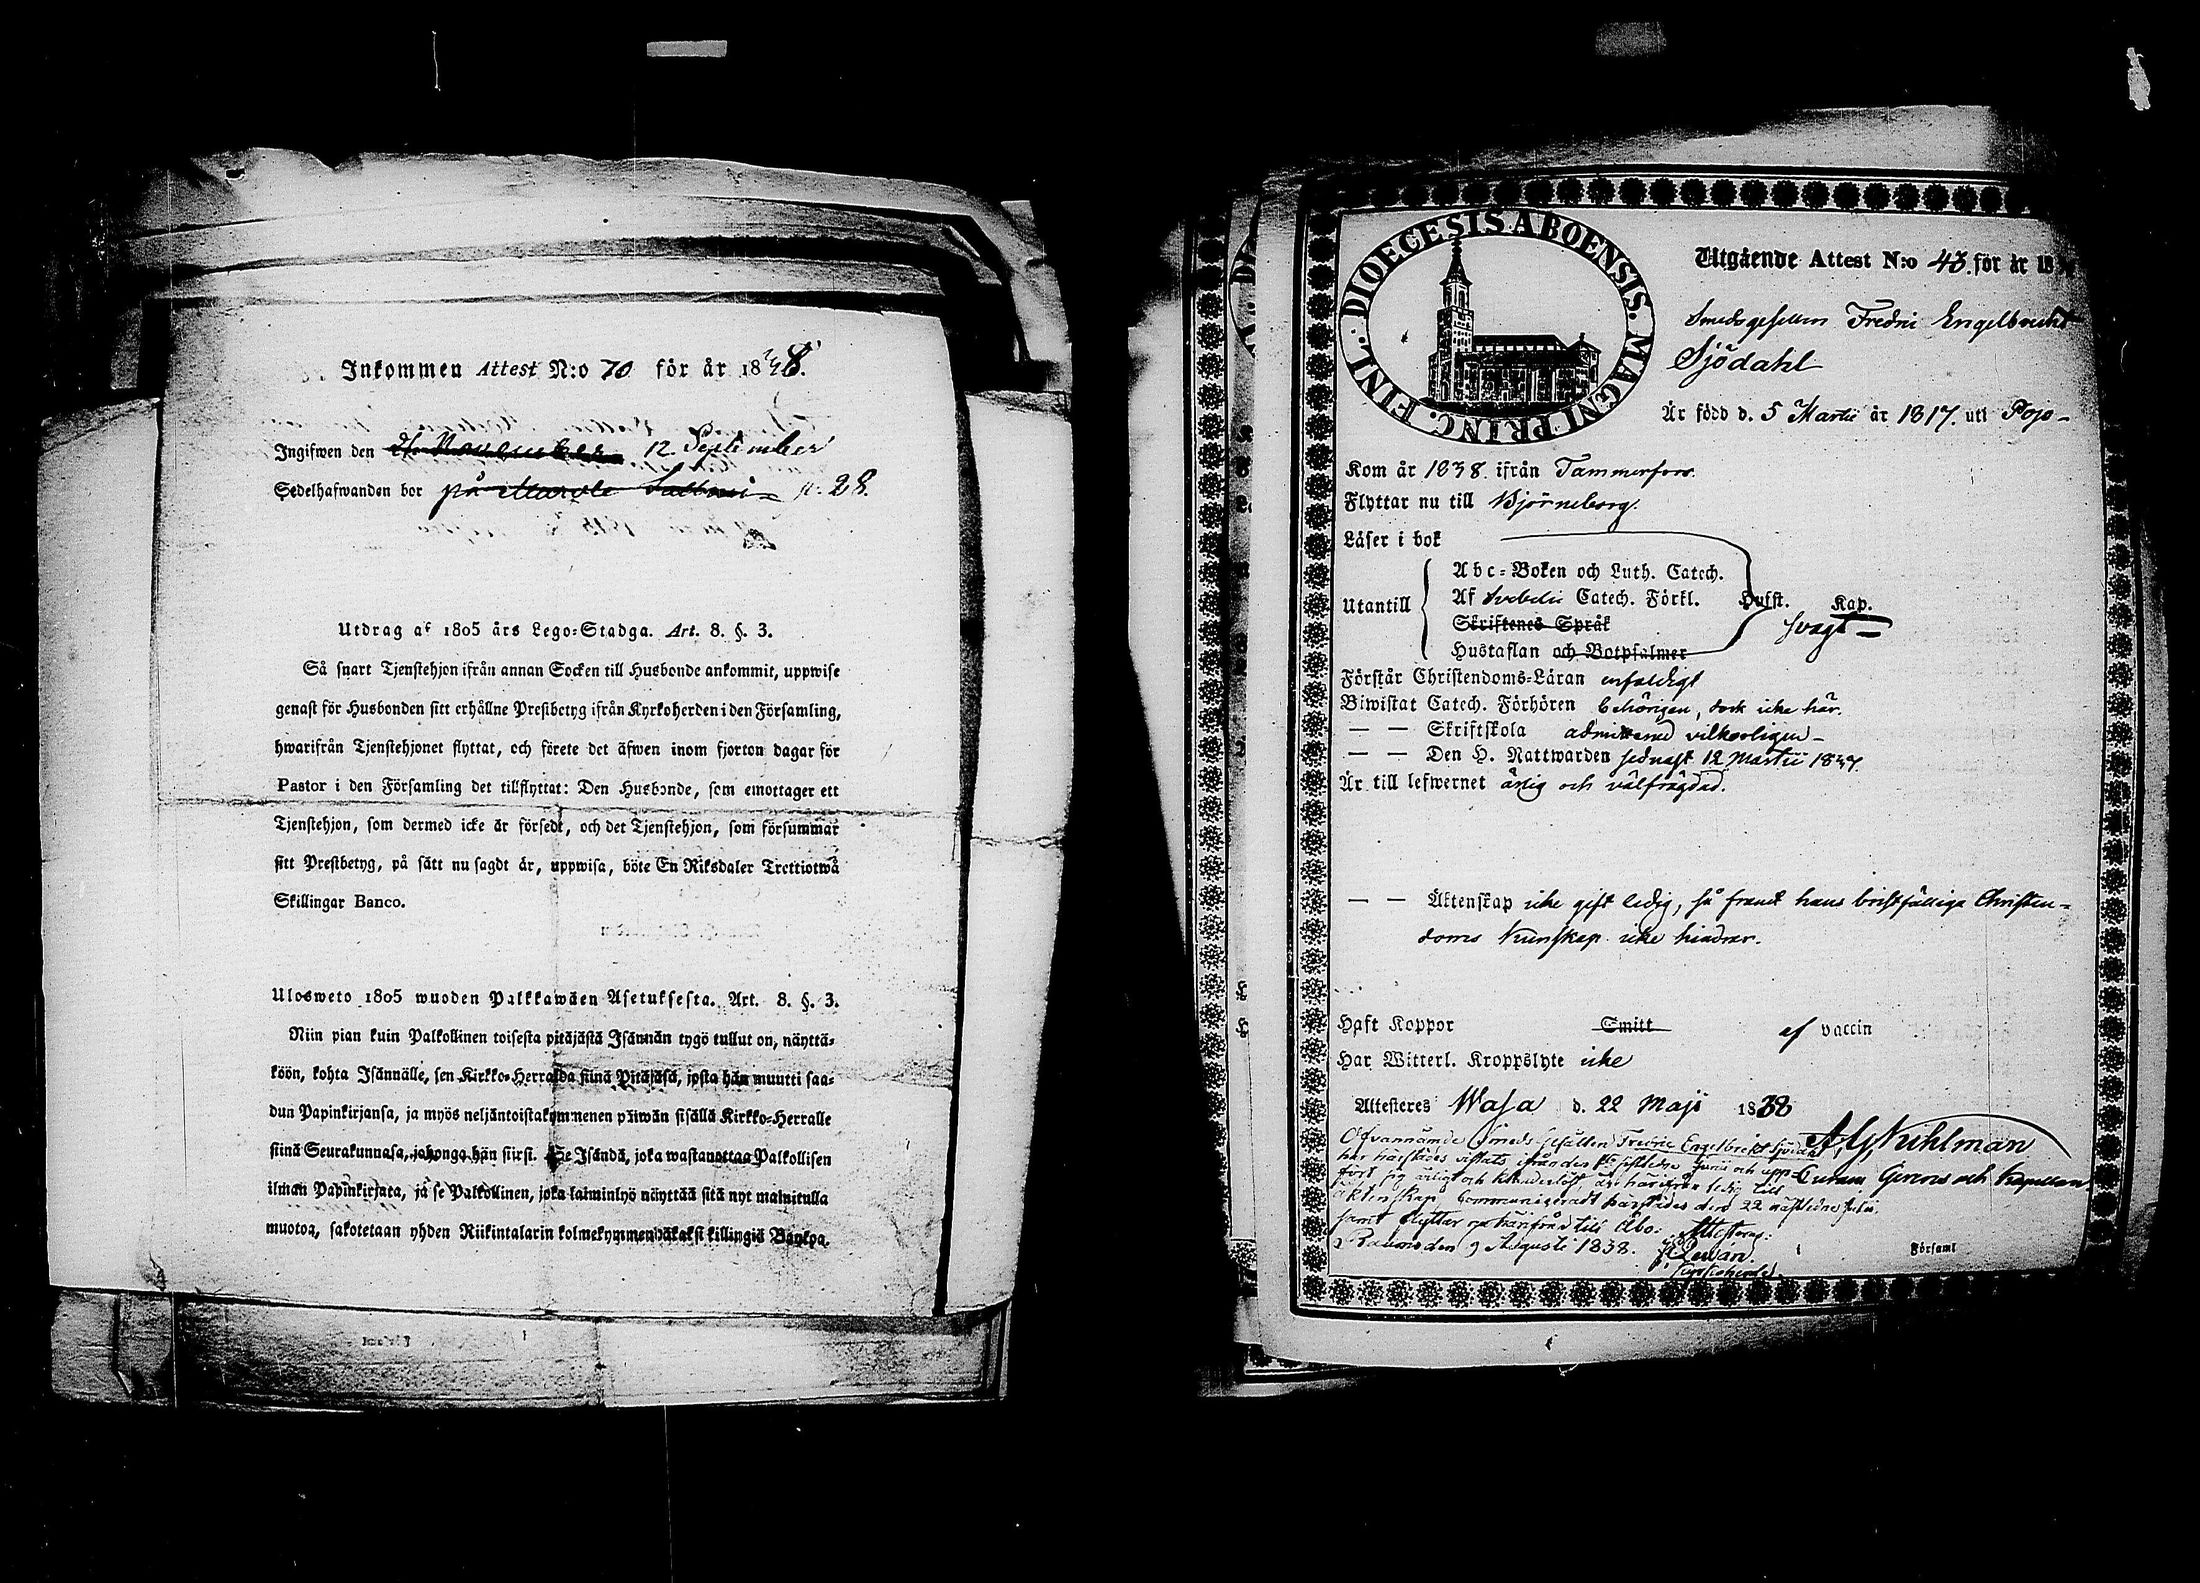 Inkommen Attest N:o 70 för år 1838.
Ingifwen den 12. September
Sedelhafwanden bor på 28.
Utdrag af 1805 års Lego-Stadga. Art. 8. §. 3.
Så snart Tjenstehjon ifrån annan Socken till Husbonde ankommit, uppwise
genast för Husbonden sitt erhållne Prestbetyg ifrån Kyrkoherden i den Församling,
hwarifrån Tjenstehjonet flyttat, och förete det äfwen inom fjorton dagar för
Pastor i den Församling det tillflyttat: Den Husbonde, som emottager ett
Tjenstehjon, som dermed icke är försedt, och det Tjenstehjon, som försummar
sitt Prestbetyg, på sätt nu sagdt är, uppwisa, böte En Riksdaler Trettiotwå
Skillingar Banco.
Ulosweto 1805 wuoden Palkkawäen Asetuksesta. Art. 8. §. 3.
Niin pian kuin Palkollinen toisesta pitäjästä Isännän tygö tullut on, näyttä-
köön, kohta Isännälle, sen Kirkko-Herralda siinä Pitäjäsä, josta hän muutti saa-
dun Papinkirjansa, ja myös neljäntoistakymmenen päiwän sisällä Kirkko-Herralle
siinä Seurakunnasa, johonga hän siirst. Se Isändä, joka wastanottaa Palkollisen
ilman Papinkirjata, ja se Palkollinen, joka laiminlyö näyttää sitä nyt mainitulla
muotoa, sakotetaan yhden Riikintalarin kolmekymmendäkaksi killingiä Bankpa.
DIOECESIS ABOENSIS. MAGNI PRINC. FINL.
Utgående Attest N:o 43. för år 18
Smedsgesellen Fredric Engelbrecht
Sjödahl
Är född d. 5 Martii år 1817. uti Pojo-
Kom år 1838. ifrån Tammerfors.
Flyttar nu till Björneborg.
Läser i bok
Abc-Boken och Luth. Catech.
Utantill Af Svebelii Catech. Förkl. Hufst. Kap.
Skriftenes Språk svagt-
Hustaflan och Botpsalmer
Förstår Christendoms-Läran enfaldigt
Biwistat Catech. Förhören behörigen, dock icke här.
— — Skriftskola admitterad vilkorligen-
— — Den H. Nattwarden sednast 12 Martii 1837
Är till lefwernet ärlig och välfrägdad.
— — Äktenskap icke gift ledig, så framt hans bristfälliga Christen-
doms kunskap icke hindrar.
Haft Koppor Smitt af vaccin
Har Witterl. Kroppslyte icke
Attesteres Wasa d. 22 Maji 1838
A. G. Kuhlman
Curam Gerens och Kapellan
Ofvannämde Smeds Gesällen Fredric Engelbrekt Sjödahl
har härstädes vistats ifrån den sistledne Junii och upp-
fört sig ärligt och är härifrån ledig till
äktenskap, Communicerat härstädes den 22 sistledne Julii.
samt flyttar härifrån till Åbo: Attesteras:
Raumo den 9 Augusti 1838.
Kyrkoherde.
Församl